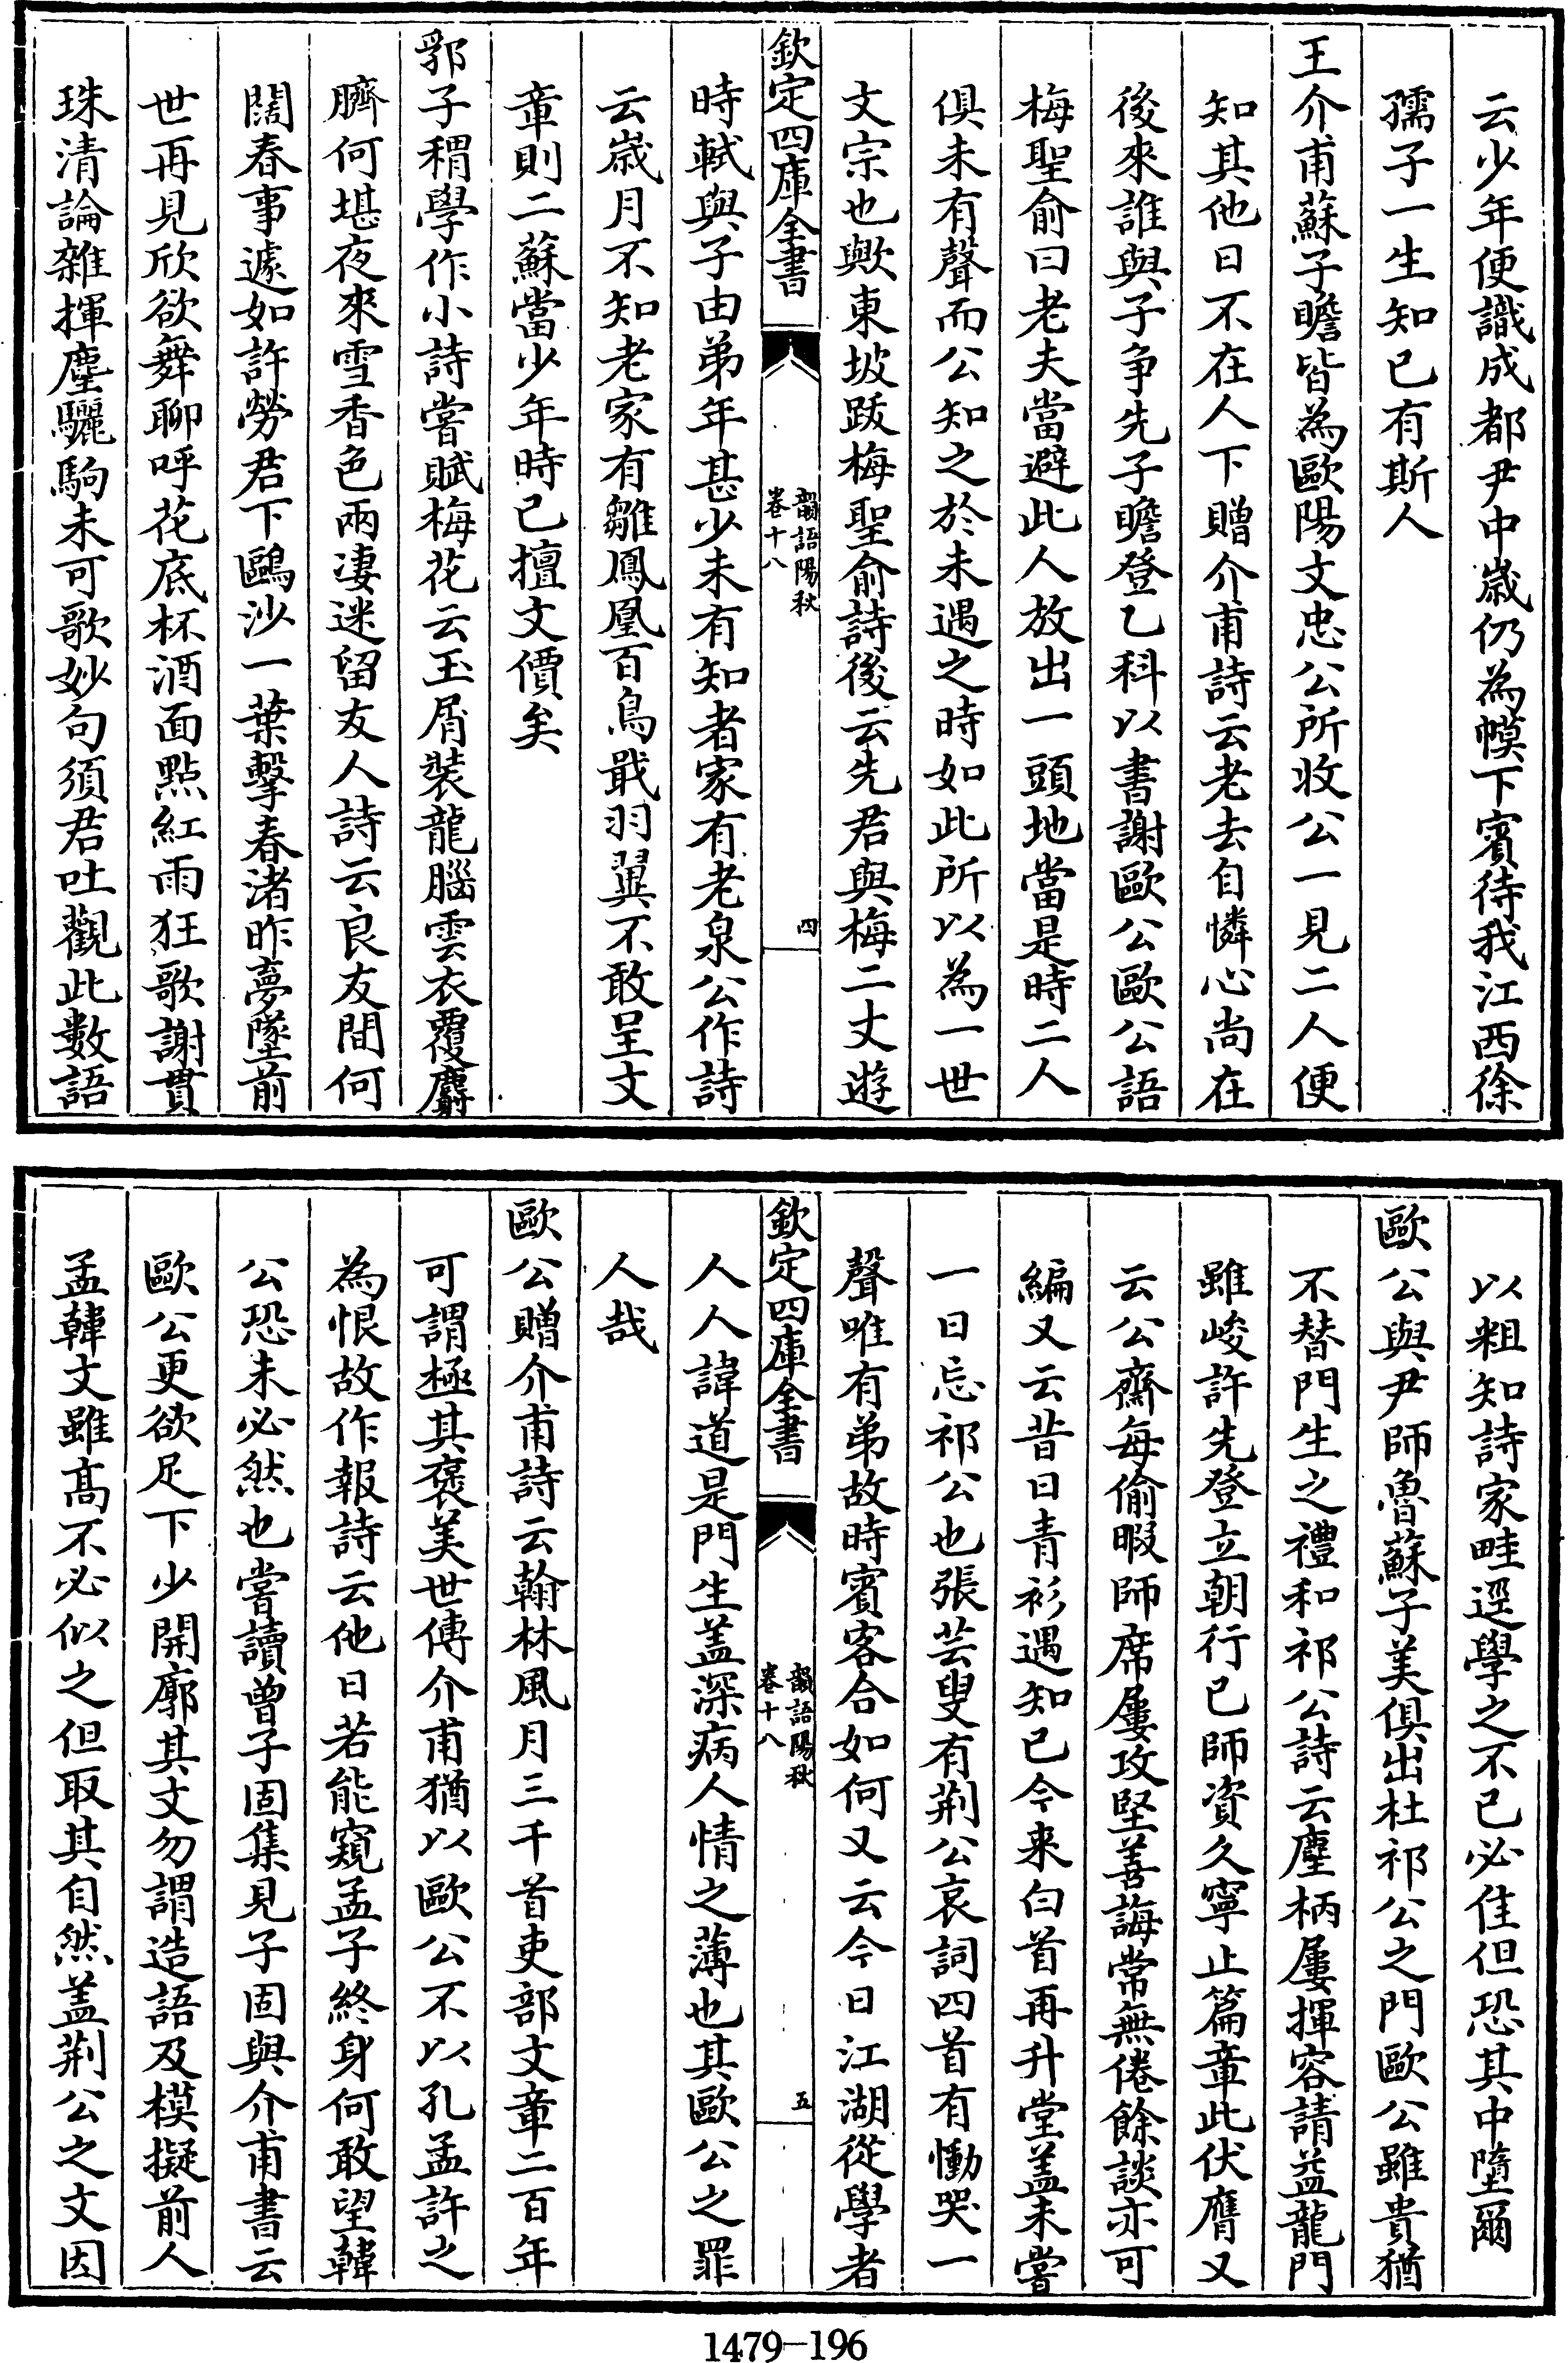 云少年便識成都尹中嵗仍為幙下賓待我江西徐
孺子一生知已有斯人
王介甫蘇子瞻皆為歐陽文忠公所收公一見二人便
知其他日不在人下贈介甫詩云老去自憐心尚在
後來誰與子争先子瞻登乙科以書謝歐公歐公語
梅聖俞曰老夫當避此人放出一頭地當是時二人
俱未有聲而公知之於未遇之時如此所以為一世
文宗也歟東坡跋梅聖俞詩後云先君與梅二丈遊
欽定四庫全書
韻語陽秋
卷十八
四
時軾與子由弟年甚少未有知者家有老泉公作詩
云嵗月不知老家有雛鳳凰百鳥戢羽翼不敢呈文
章則二蘇當少年時已擅文價矣
郛子稍學作小詩嘗賦梅花云玉屑裝龍腦雲衣覆麝
臍何堪夜來雪香色兩凄迷留友人詩云良友間何
闊春事遽如許勞君下鷗沙一葉擊春渚昨夢墜前
世再見欣欲舞聊呼花底杯酒面點紅雨狂歌謝貫
珠清論雜揮塵驪駒未可歌妙句須君吐觀此數語
以粗知詩家畦逕學之不已必佳但恐其中墮爾
歐公與尹師魯蘇子美俱出杜祁公之門歐公雖貴猶
不替門生之禮和祁公詩云塵柄屢揮容請益龍門
雖峻許先登立朝行已師資久寧止篇章此伏膺又
云公齋每偷暇師席屢攻堅善誨常無倦餘談亦可
編又云昔日青衫遇知已今来白首再升堂盖未嘗
一日忘祁公也張芸叟有荆公哀詞四首有慟哭一
聲唯有弟故時賓客合如何又云今日江湖從學者
欽定四庫全書
韻語陽秋
卷十八
五
人人諱道是門生盖深病人情之薄也其歐公之罪
人哉
歐公贈介甫詩云翰林風月三千首吏部文章二百年
可謂極其褒美世傳介甫猶以歐公不以孔孟許之
為恨故作報詩云他日若能窺孟子終身何敢望韓
公恐未必然也嘗讀曽子固集見子固與介甫書云
歐公更欲足下少開廓其文勿謂造語及模擬前人
孟韓文雖髙不必似之但取其自然盖荆公之文因
1479-196